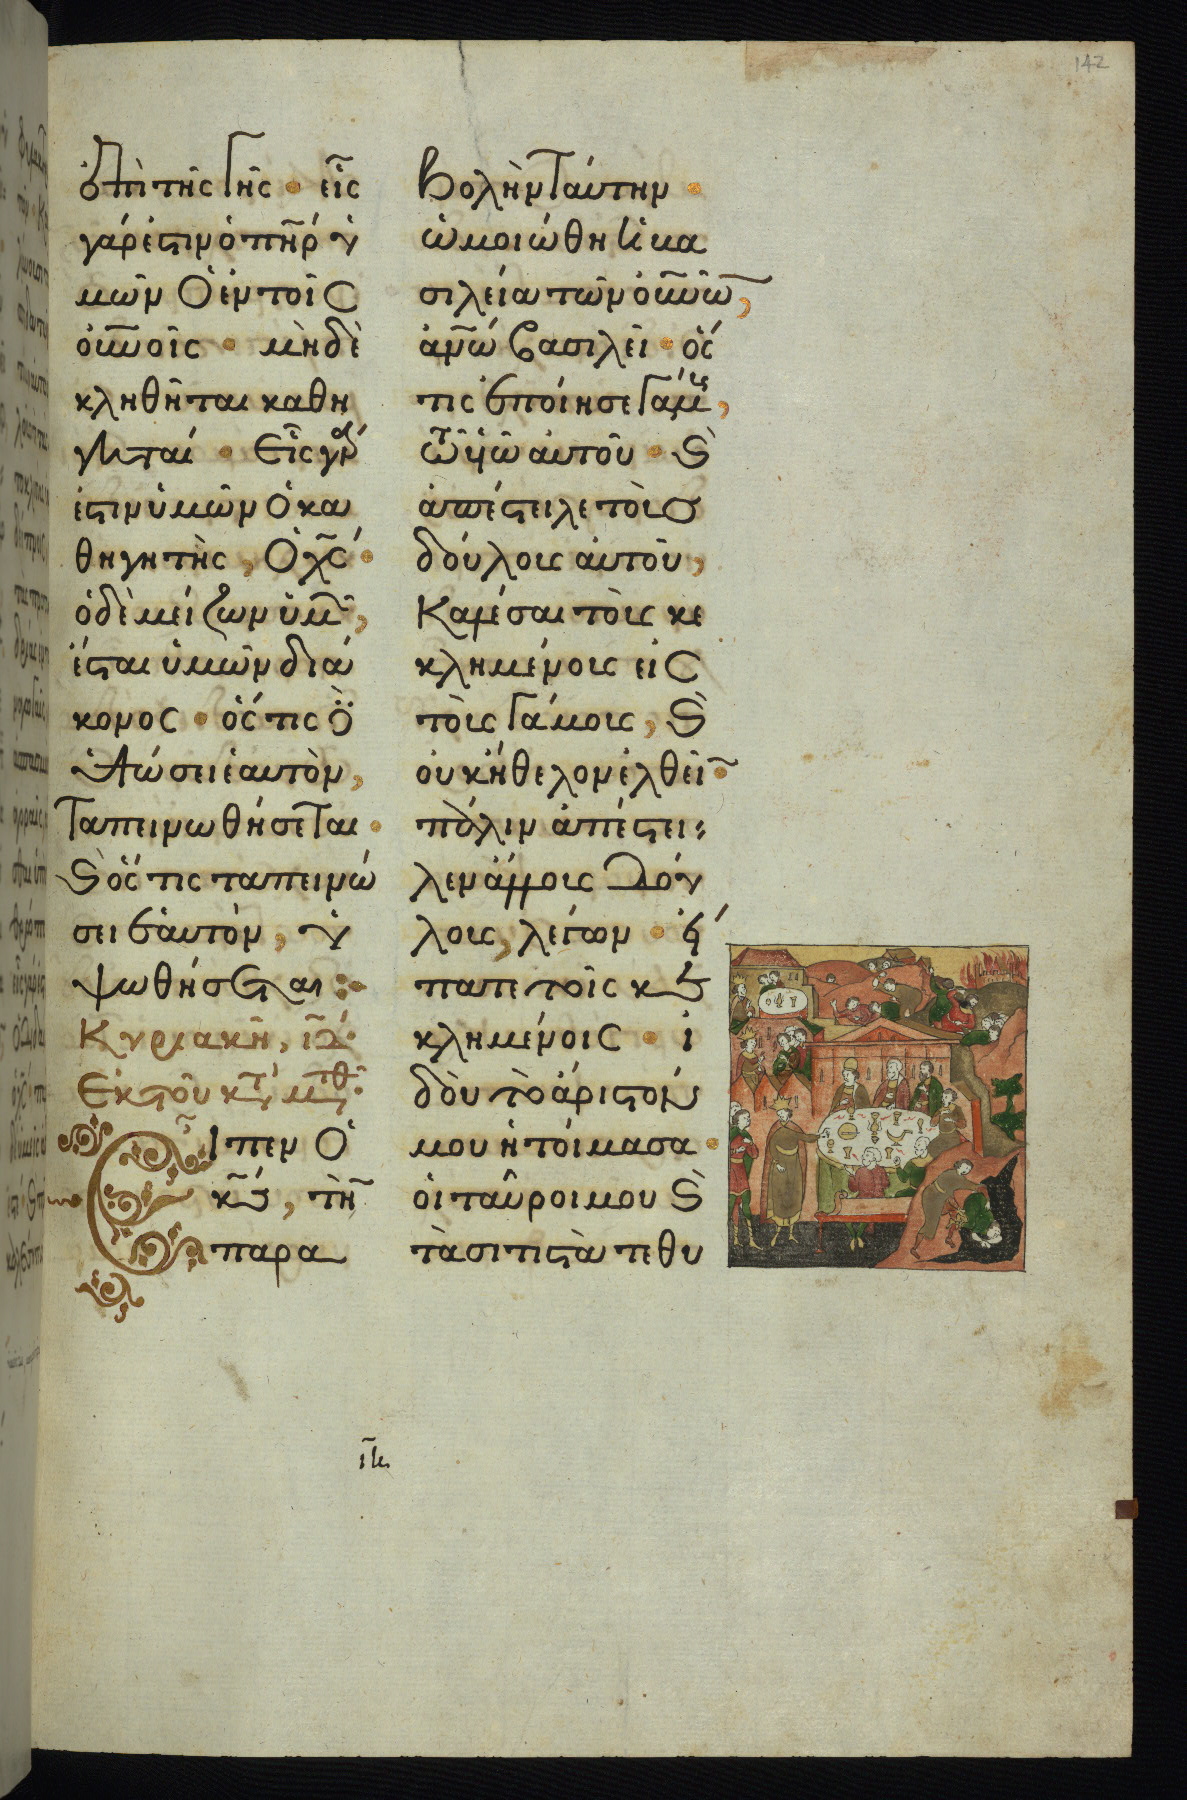 142
ἐπὶ τῆς γῆς · εἷς
γάρ ἐστιν ὁ π̅η̅ρ ὑ
μῶν ὁ ἐν τοῖς
ο̅υ̅νοῖς · μὴ δὲ
κληθῆται καθη
γηταί · εἷς γὰρ
ἐστιν ὑμῶν ὁ κα
θηγητὴς, ὁ χ̅ς ·
ὁ δὲ μείζων ὑμῶ̅,
ἔσται ὑμῶν διά
κονος · ὅς τις ὑ
ψώσει ἑαυτὸν,
ταπεινωθήσεται ·
ϗ ὅς τις ταπεινώ
σει ἑαυτὸν, ὑ
ψωθήσεται :·
Κυριακῇ, ι̅δ ·
Ἐκ τοῦ κτ μτθ ·
Εἶπεν ὁ
κ̅ς, τὴ̅
παρα
βολὴν ταύτην ·
ὡμοιώθη ἡ βα
σιλεία τῶν ο̅υ̅νῶ̅,
ἀ̅νῳ βασιλεῖ · ὅς
τις ἐποίησε γάμους,
τῷ υἱῷ αὐτοῦ · ϗ
ἀπέστειλε τοὺς
δούλους αὐτοῦ,
καλέσαι τοὺς κε
κλημένους εἰς
τοὺς γάμους, ϗ
οὐκ ἤθελον ἐλθεῖ̅ ·
πάλιν ἀπέστει
λεν ἄλλους δού
λους, λέγων · εἴ
πατε τοῖς κε
κλημένοις · ἰ
δοὺ τὸ ἄριστόν
μου ἡτοίμασα ·
οἱ ταῦροι μου ϗ
τὰ σιτιστὰ τεθυ
ι̅ε